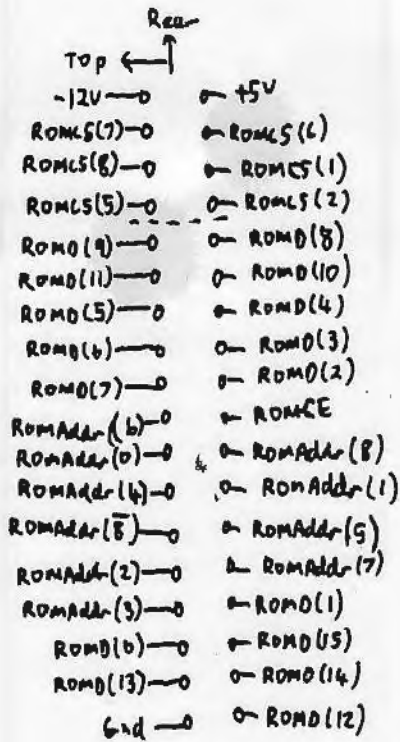 Rear
Top
-12V +5V
ROMCS(7) ROMCS(6)
ROMCS(8) ROMCS(1)
ROMCS(5) ROMCS(2)
ROMD(9) ROMD(8)
ROMD(11) ROMD(10)
ROMD(5) ROMD(4)
ROMD(6) ROMD(3)
ROMD(7) ROMD(2)
ROMAddr(6) ROMCE
ROMAddr(0) ROMAddr(8)
ROMAddr(4) ROMAddr(1)
ROMAddr(8̅) ROMAddr(5)
ROMAddr(2) ROMAddr(7)
ROMAddr(3) ROMD(1)
ROMD(0) ROMD(15)
ROMD(13) ROMD(14)
Gnd ROMD(12)